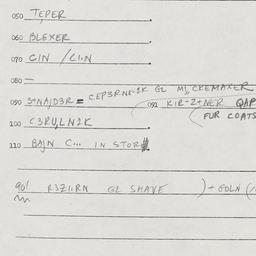 050 TEPER
060 BLEXER
070 CIN / CI.N
080 —
CEP3RNE-1K GL MI, CKEMAXER
090 = 091 KIR-Z+NER QAP
FUR COATS
100 C3RULN1K
110 BAJN C... IN STOR
901 R3ZI.RN GL SHAVE ) + GOLN